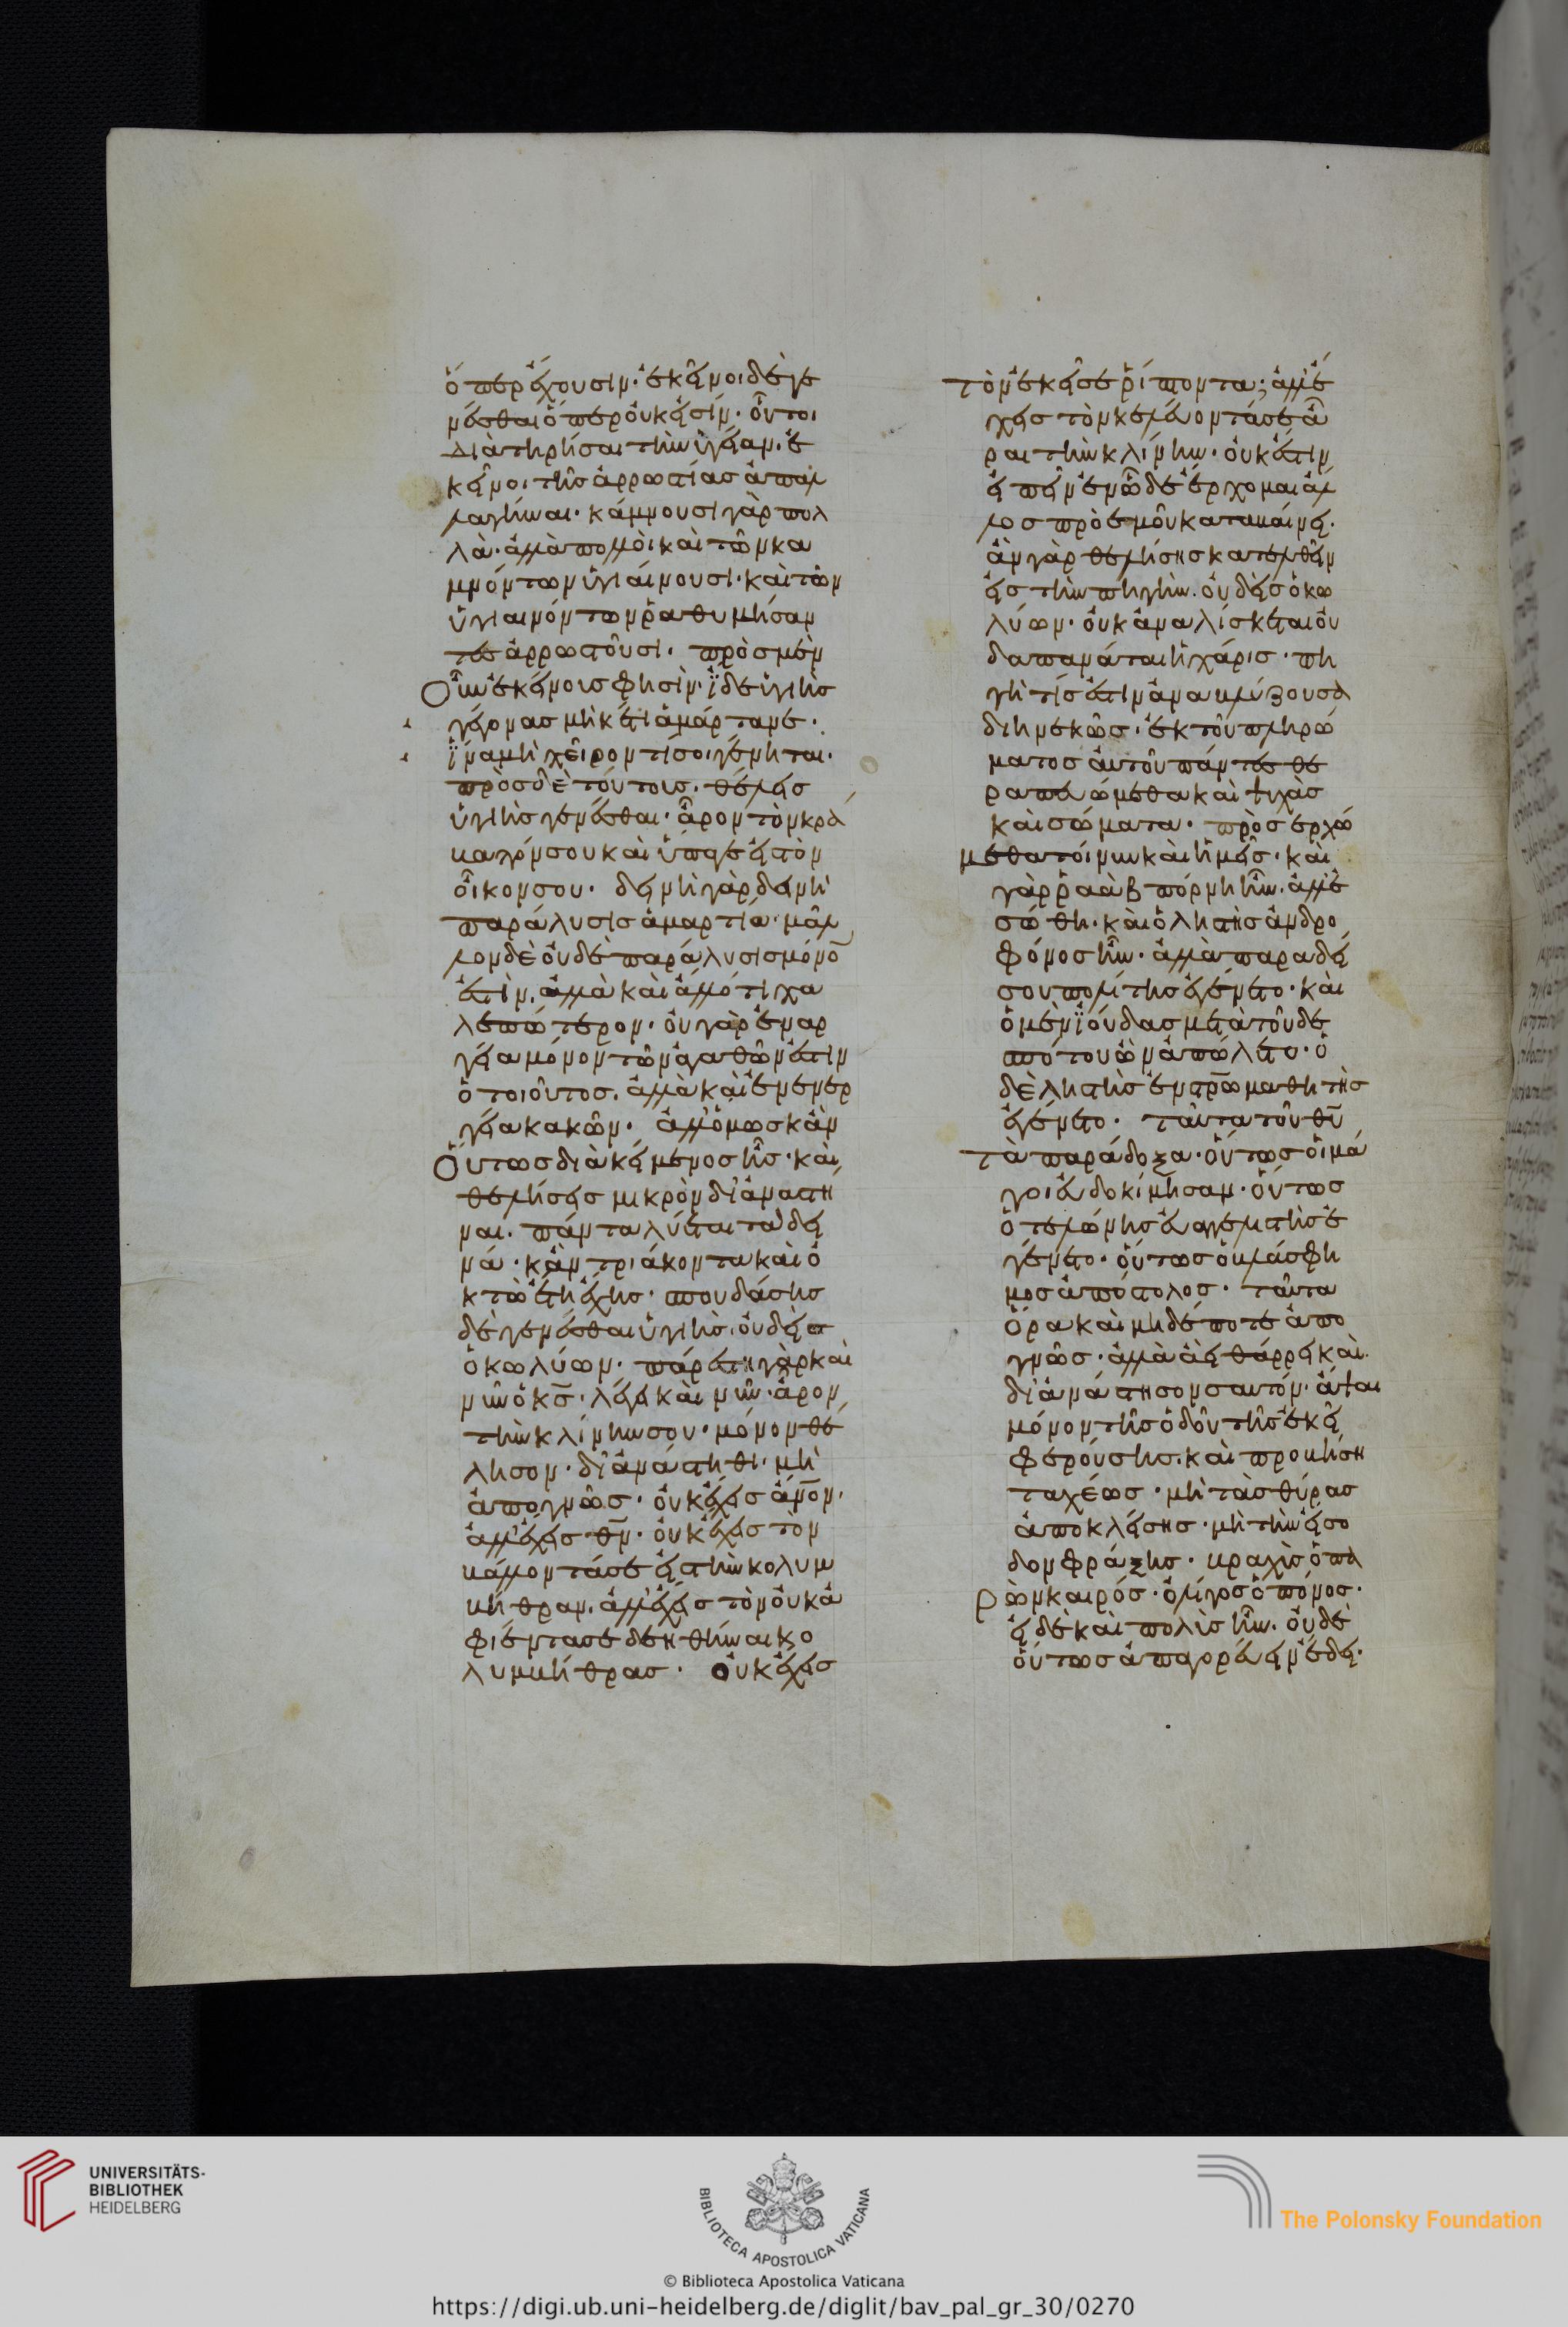 ὅπερ ἔχουσιν· ἐκεῖνοι δὲ γε
νέσθαι ὅπερ οὐκ εἰσίν· οὗτοι
διατηρῆσαι τὴν ὑγείαν· ἐ
κεῖνοι τῆς ἀρρωστίας ἀπαλ
λαγῆναι· κάμνουσι γὰρ πολ
λὰ· ἀλλὰ πολλοὶ καὶ τῶν κα
μνόντων ὑγιαίνουσι· καὶ τῶν
ὑγιαινόντων ῥαθυμήσαν
τες ἀρρωστοῦσι· πρὸς μὲν
οὖν ἐκείνοις φησὶν· ἴδε ὑγιὴς
γέγονας μηκέτι ἁμάρτανε·
ἵνα μὴ χεῖρον τί σοι γένηται·
πρὸς δὲ τούτοις· θέλεις
ὑγιὴς γενέσθαι· ἆρον τὸν κρά
βατόν σου καὶ ὕπαγε εἰς τὸν
οἶκον σου· δεινὴ γὰρ δεινὴ
παράλυσις ἁμαρτία· μᾶλ
λον δὲ οὐδὲ παράλυσις μόνο̄
ἐστὶν, ἀλλὰ καὶ ἄλλό τι χα
λεπώτερον· οὐ γὰρ ἐν ἀρ
γεία μόνον τῶν ἀγαθῶν ἐστιν
ὁ τοιοῦτος, ἀλλὰ καὶ ἐν ἐνερ
γεία κακῶν· ἀλλ' ὅμως κἂν
οὕτως διακείμενος ᾖς· καὶ
θελήσεις μικρὸν διαναστῆ
ναι· πάντα λύεται τὰ δει
νά· κἂν τριάκοντα καὶ ὀ
κτὼ ἔτη ἔχης· σπουδάσης
δὲ γενέσθαι ὑγιὴς· οὐδεὶς
ὁ κωλύων· πάρεστι γὰρ καὶ
νῦν ὁ κ̅ς̅· λέγει καὶ νῦν· ἆρον
τὴν κλίνην σου· μόνον θέ
λησον· διανάστηθι· μὴ
ἀπογνῶς· οὐκ ἔχεις ἄν̅ο̅ν̅·
ἀλλ' ἔχεις θ̅ν̅· οὐκ ἔχεις τὸν
βάλλοντά σε εἰς τὴν κολυμ
βήθραν· ἀλλ' ἔχεις τὸν οὐκ ἀ
φιέντα σε δεηθῆναι κο
λυμβήθρας· οὐκ ἔχεις
τὸν ἐκεῖ σε ῥίπτοντα; ἀλλ' ἔ
χεις τὸν κελεύοντά σε ἆ
ραι τὴν κλίνην· οὐκ ἔστιν
εἰπεῖν ἐν ᾧ δὲ ἔρχομαι ἄλ
λος πρὸ ἐμοῦ καταβαίνει·
ἂν γὰρ θελήσης κατελθεῖν
εἰς τὴν πηγὴν· οὐδεὶς ὁ κω
λύων· οὐκ ἀναλίσκεται οὐ
δαπανᾶται ἡ χάρις· πη
γή τίς ἐστιν ἀναβλύζουσα
διηνεκῶς· ἐκ τοῦ πληρώ
ματος αὐτοῦ πάντες θε
ραπευώμεθα καὶ ψυχὰς
καὶ σώματα· προσερχώ
μεθα τοίνυν καὶ ἡμεῖς· καὶ
γὰρ ῥαὰβ πόρνη ἦν· ἀλλ' ἐ
σώθη· καὶ ὁ ληστὴς ἀνδρο
φόνος ἦν· ἀλλὰ παραδεί
σου πολίτης ἐγένετο· καὶ
ὁ μὲν ἰούδας μετὰ τοῦ δε
σπότου ὢν ἀπώλετο· ὁ
δὲ ληστὴς ἐν σ̅τ̅ρ̅ω̅ μαθητὴς
ἐγένετο· ταῦτα τοῦ θ̅υ̅
τὰ παράδοξα· οὕτως οἱ μά
γοι εὐδοκίμησαν· οὕτως
ὁ τελώνης εὐαγγελιστὴς ἐ
γένετο· οὕτως ὁ βλάσφη
μος ἀπόστολος· ταῦτα
ὅρα καὶ μηδέποτε ἀπο
γνῶς· ἀλλὰ ἀεὶ θάρρει καὶ
διανάστησον σαυτόν· ἅψαι
μόνον τῆς ὁδοῦ τῆς ἐκεῖ
φερούσης· καὶ προβήση
ταχέως· μὴ τὰς θύρας
ἀποκλείσης· μὴ τὴν εἴσο
δον φράξης· βραχὺς ὁ πα
ρὼν καιρός· ὀλίγος ὁ πόνος·
εἰ δὲ καὶ πολὺς ἦν· οὐδὲ
οὕτως ἀπαγορεύειν ἔδει·
UNIVERSITÄTS-
BIBLIOTHEK
HEIDELBERG
BIBLIOTECA APOSTOLICA VATICANA
The Polonsky Foundation
© Biblioteca Apostolica Vaticana
https://digi.ub.uni-heidelberg.de/diglit/bav_pal_gr_30/0270